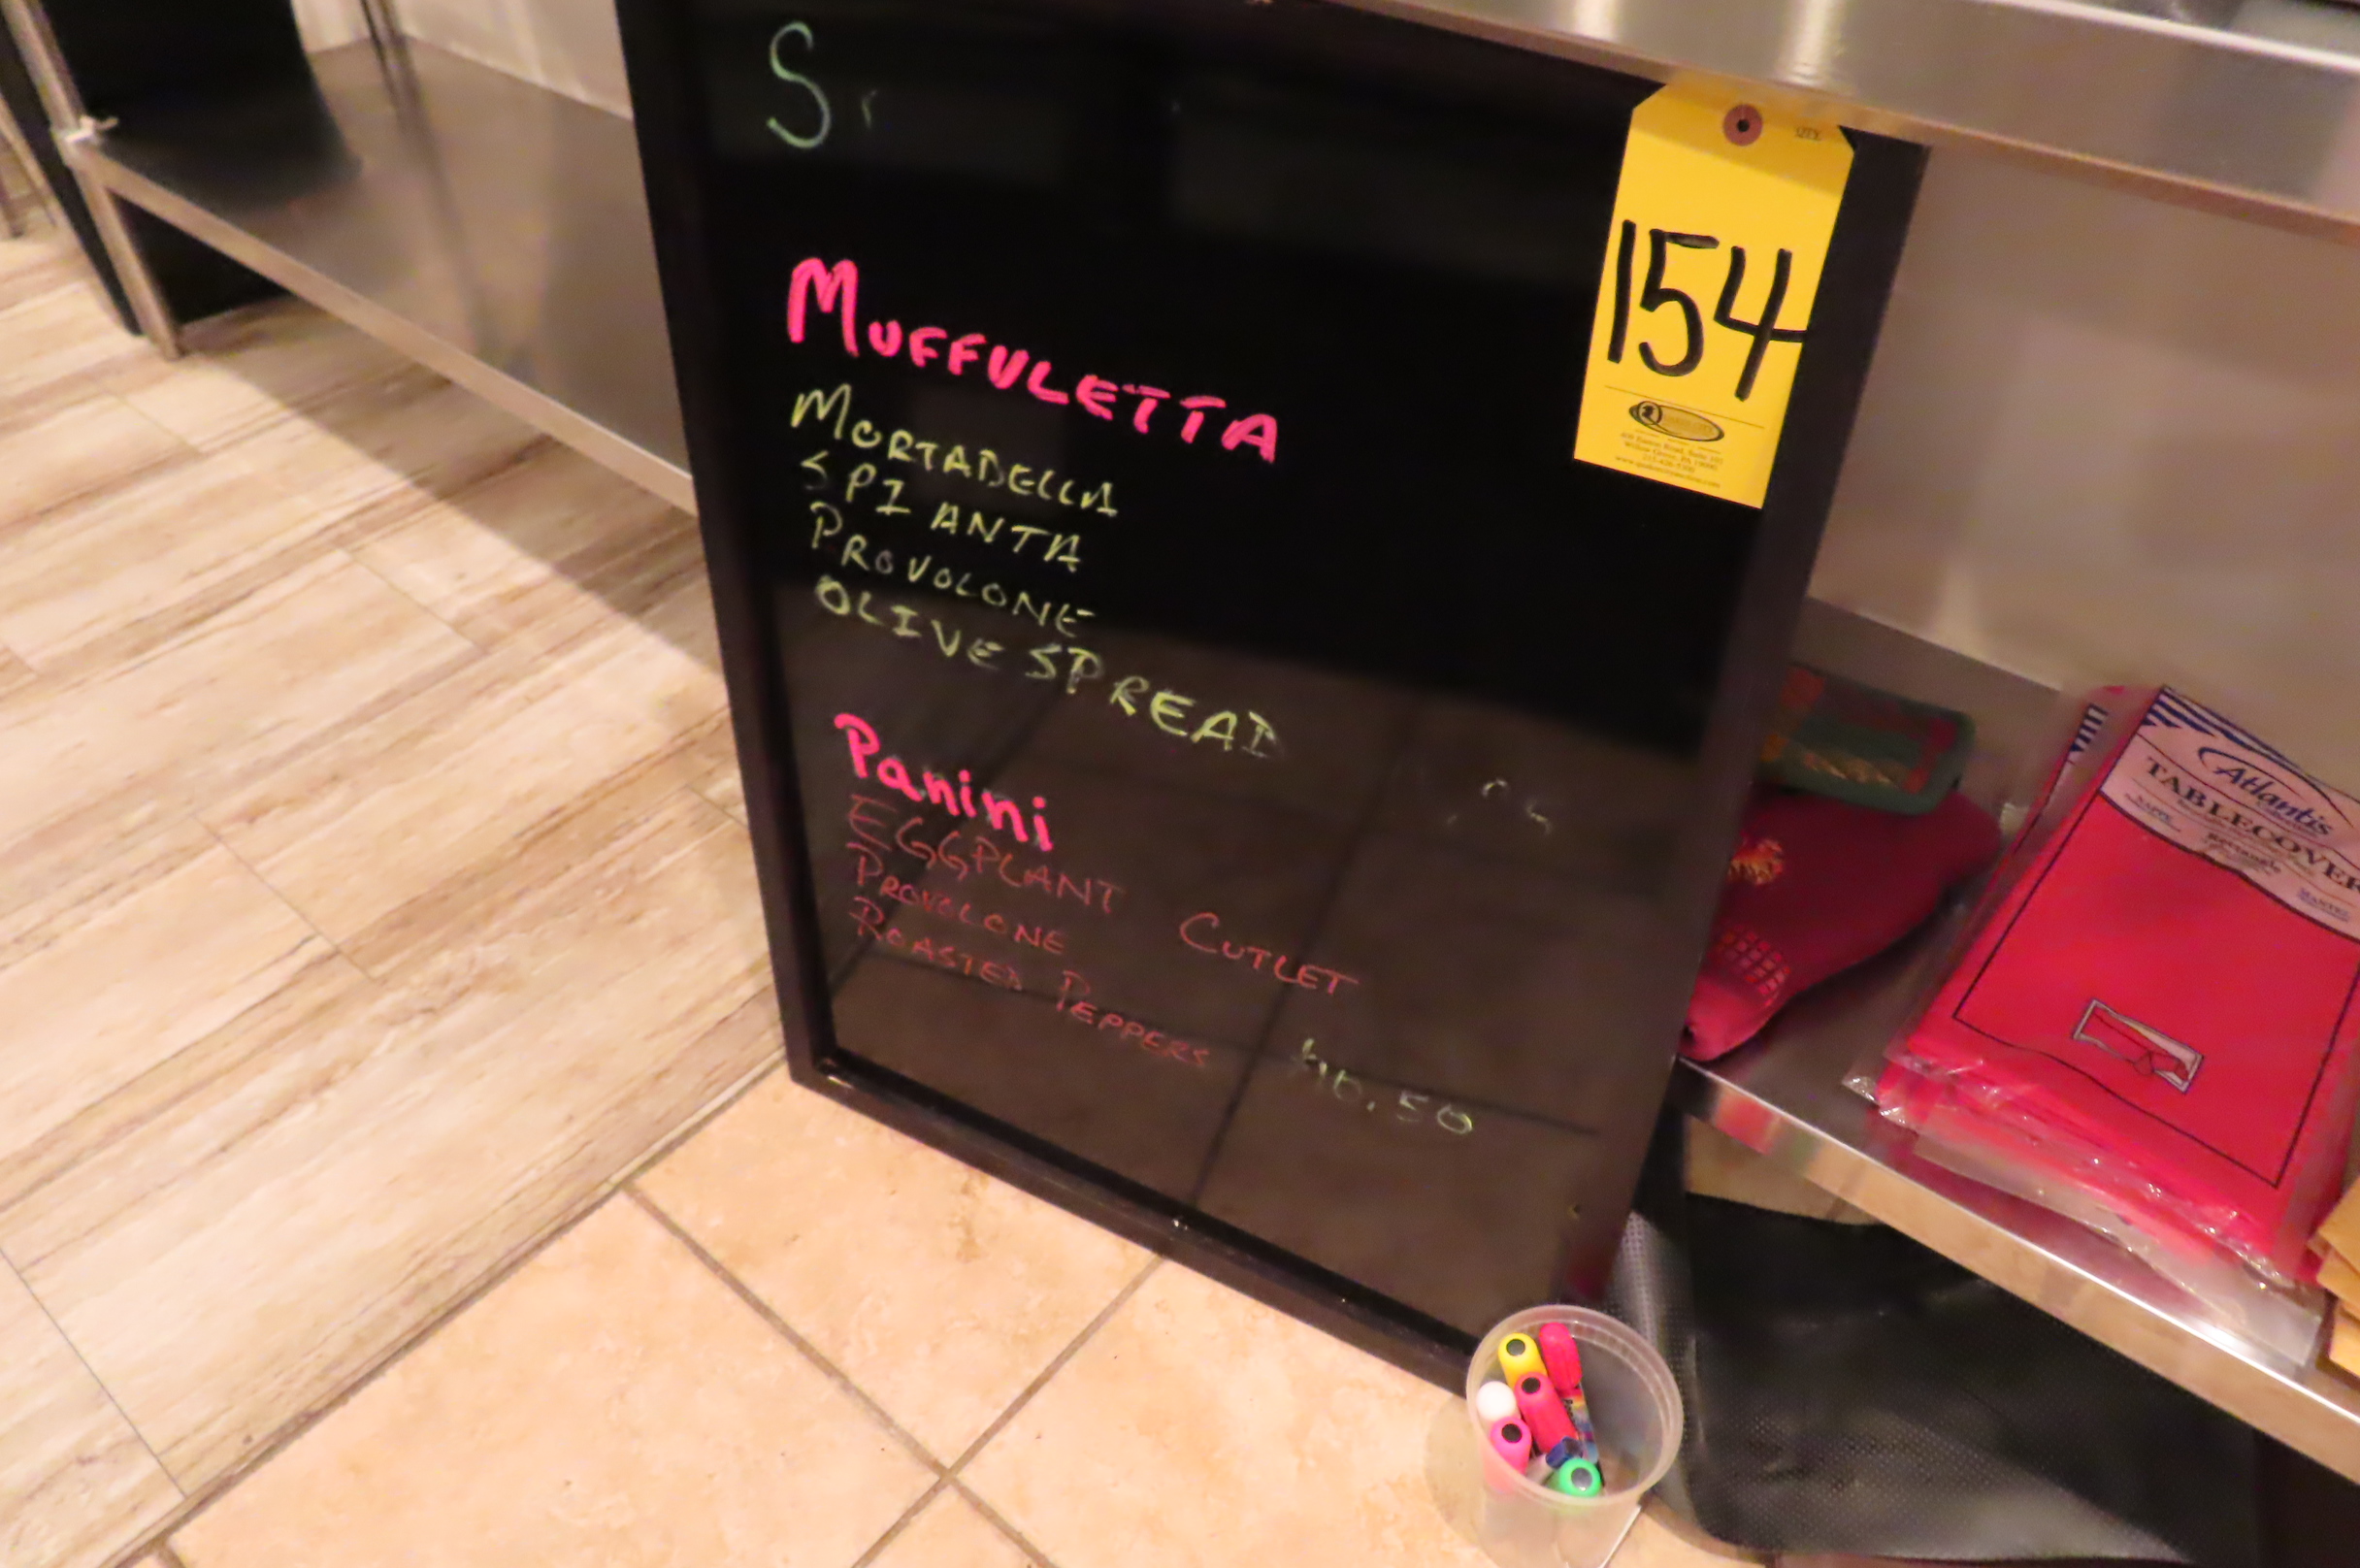 S
MUFFULETTA
MORTADELLA
SPIANTA
PROVOLONE
OLIVE SPREAD
Panini
EGGPLANT CUTLET
PROVOLONE
ROASTED PEPPERS
QTY.
154
Atlantis
TABLECOVER
Rectangle